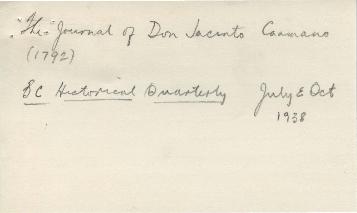 "The" Journal of Don Jacinto Caamano
(1792)
BC Historical Quarterly July & Oct
1938